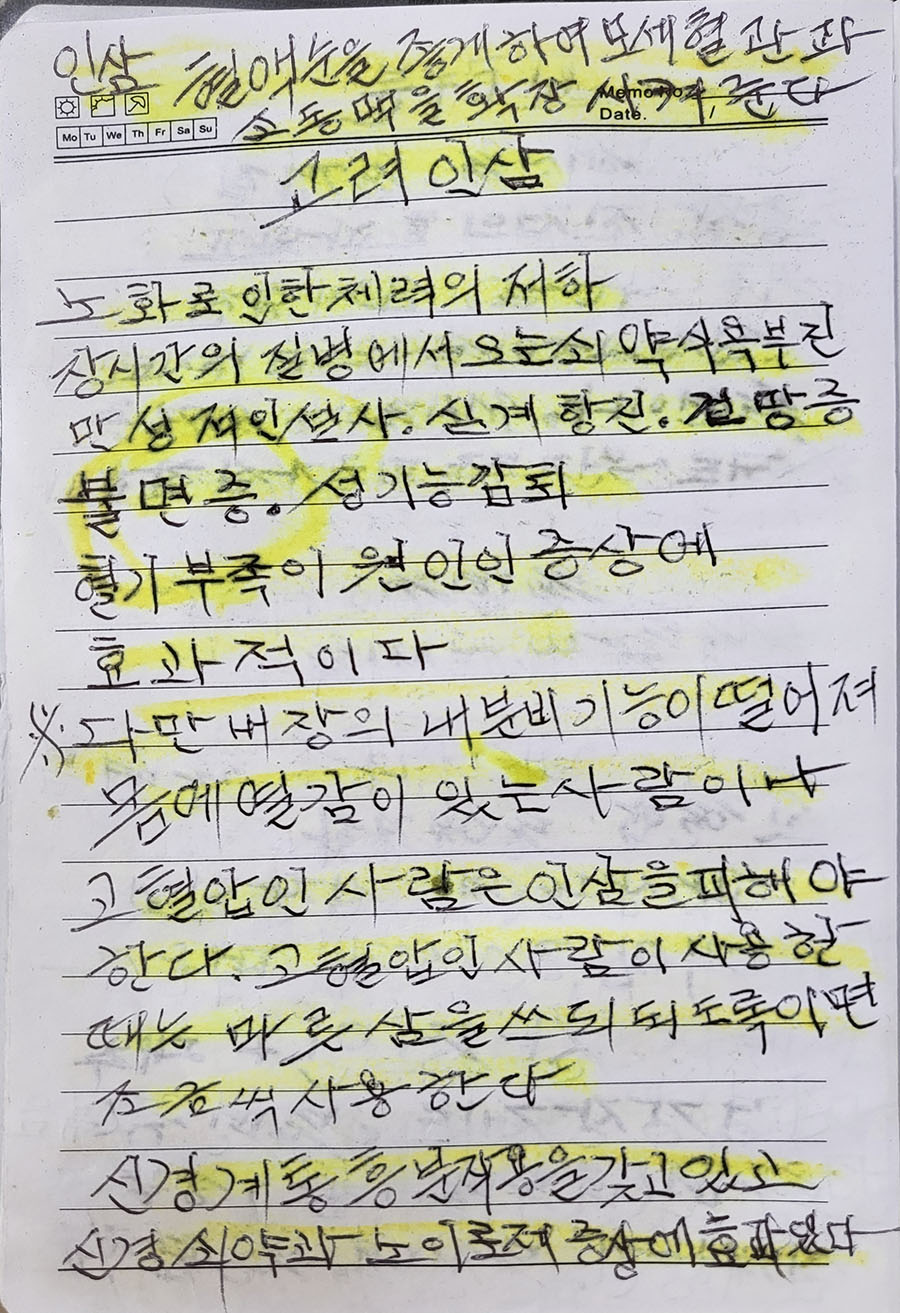 인삼 혈액순을 좋게하여 모세혈관과
소동맥을 확장 시켜 준다
Memo No.
Mo Tu We Th Fr Sa Su
Date. /
고려 인삼
노화로 인한 체력의 저하
장시간의 질병에서 오는 쇠약 식욕부진
만성적인 설사. 심계 항진. 건망증
불면증. 성기능감퇴
혈기 부족이 원인인 증상에
효과적이다
※ 다만 비장의 내분비기능이 떨어져
몸에 열감이 있는 사람이나
고혈압인 사람은 인삼을 피해야
한다. 고혈압인 사람이 사용할
때는 마른 삼을 쓰되 되도록이면
조금씩 사용 한다
신경계통 흥분작용을 갖고 있고
신경 쇠약과 노이로제 증상에 효과있다